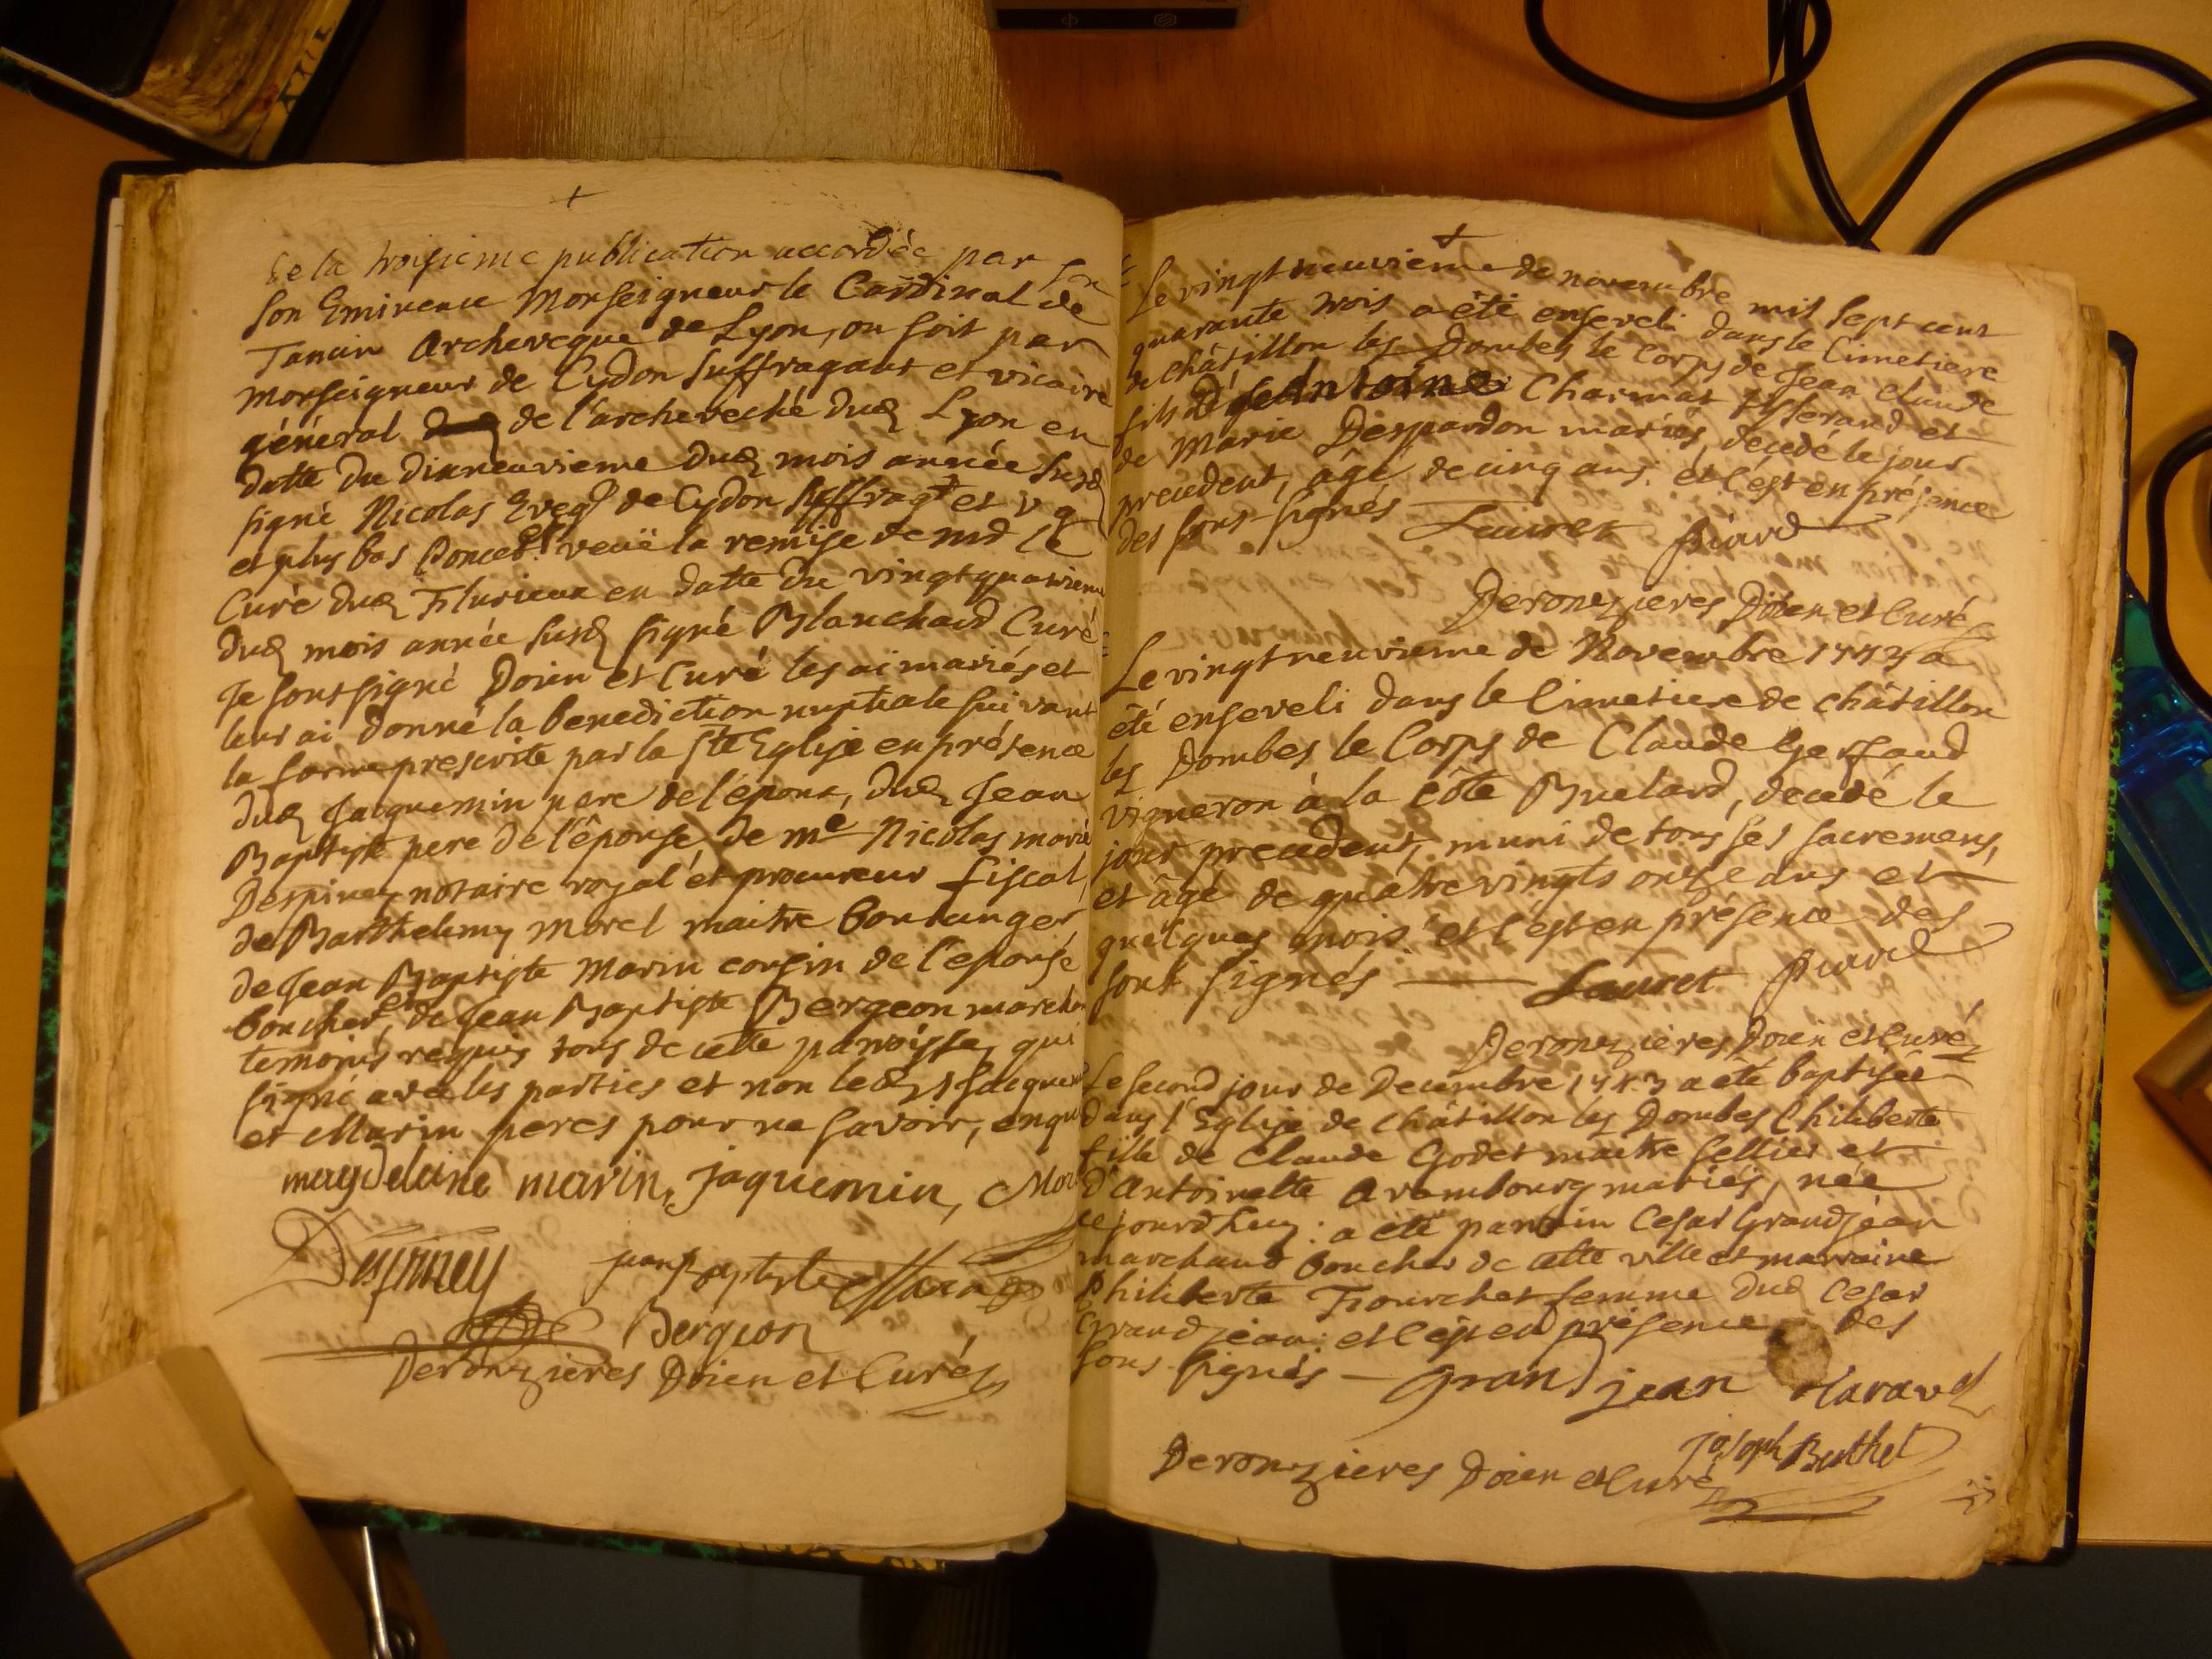 +
de la troisieme publication accordée par son
son Eminence Monseigneur le Cardinal de
Tancin Archeveque de Lyon, ou soit par
Monseigneur de Cydon suffragant et vicaire
général de l'archeveché dud Lyon en
datte du dixneuvieme dud mois année susd
signé Nicolas Eveq de Cydon suffragt et v g
et plus bas Poncet veuë la remise de md le
Curé dud Flurieux en datte du vingtquatrieme
dud mois année susd signé Blanchard Curé
Je soussigné Doien et Curé les ai mariés et
leur ai donné la benediction nuptiale suivant
la forme prescrite par la Ste Eglise en présence
dud Jacquemin pere de l'époux, dud Jean
Baptiste pere de l'épouse, de me Nicolas marie
Despiney notaire royal et procureur fiscal,
de Barthelemy morel maitre boulanger,
de Jean Baptiste Marin cousin de l'épouse
boucher, et de Jean Baptiste Bergeon marchd
temoins requis tous de cette paroisse, qui
signé avec les parties et non lesd Jacquem
et Marin peres pour ne savoir, enquis
magdelaine marin, jaquemin, Mor
Despiney jean Baptiste Marin
Bergeon
Deronzieres Doien et Curé
+
Le vingtneuvieme de novembre mil sept cent
quarante trois a été enseveli dans le Cimetiere
de châtillon les Dombes le Corps de Jean Claude
fils de Antoine Charmat tisserand et
de Marie Desjardon mariés, decedé le jour
precedent, âgé de cinq ans. et c'est en présence
des sous-signés Lauret Piard
Deronzieres Doien et Curé
Le vingtneuvieme de Novembre 1743 a
été enseveli dans le Cimetiere de châtillon
les Dombes le Corps de Claude Gerfaud
vigneron à la côte Buelard, decedé le
jour precedent, muni de tous ses sacremens,
et âgé de quatre vingts onze ans et
quelques mois: et c'est en présence des
sous signés Lauret Piard
Deronzieres Doien et Curé
Le second jour de Decembre 1743 a été baptisée
dans l'Eglise de châtillon les Dombes Philiberte
fille de Claude Godet maitre sellier et
d'Antoinette Arambourg mariés, née
cejourdhuy: a été parrain Cesar Grandjean
marchand boucher de cette ville et marraine
Philiberte Fourchet femme dud Cesar
Grandjean: et c'est en présence des
sous-signés - grand jean Maravel
joseph Buthet
Deronzieres Doien et Curé